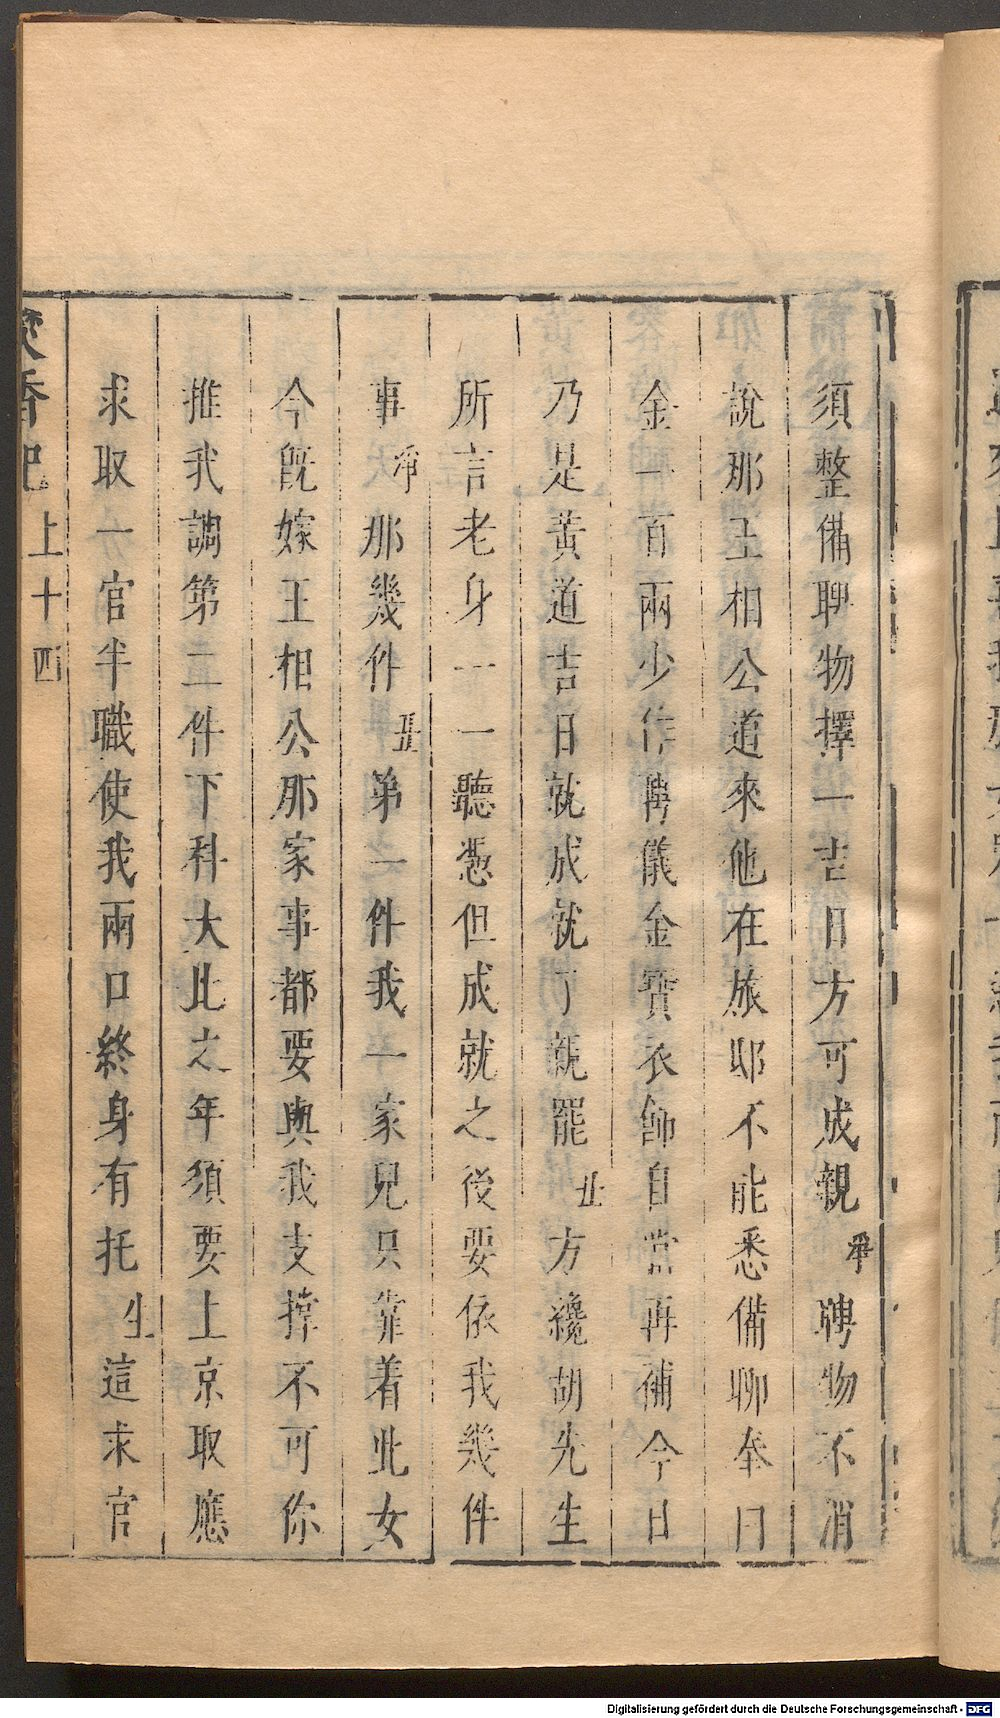 須整備聘物擇一吉日方可成親淨聘物不消
說那王相公道來他在旅邸不能悉備聊奉白
金一百兩少作聘儀金寶衣飾自當再補今日
乃是黃道吉日就成就了親罷丑方纔胡先生
所言老身一一聽憑但成就之後要依我幾件
事淨那幾件丑第一件我一家兒只靠着此女
今旣嫁王相公那家事都要與我支撑不可你
推我調第二件下科大比之年須要上京取應
求取一官半職使我兩口終身有托生這求官
焚香記 上十四
Digitalisierung gefördert durch die Deutsche Forschungsgemeinschaft - DFG